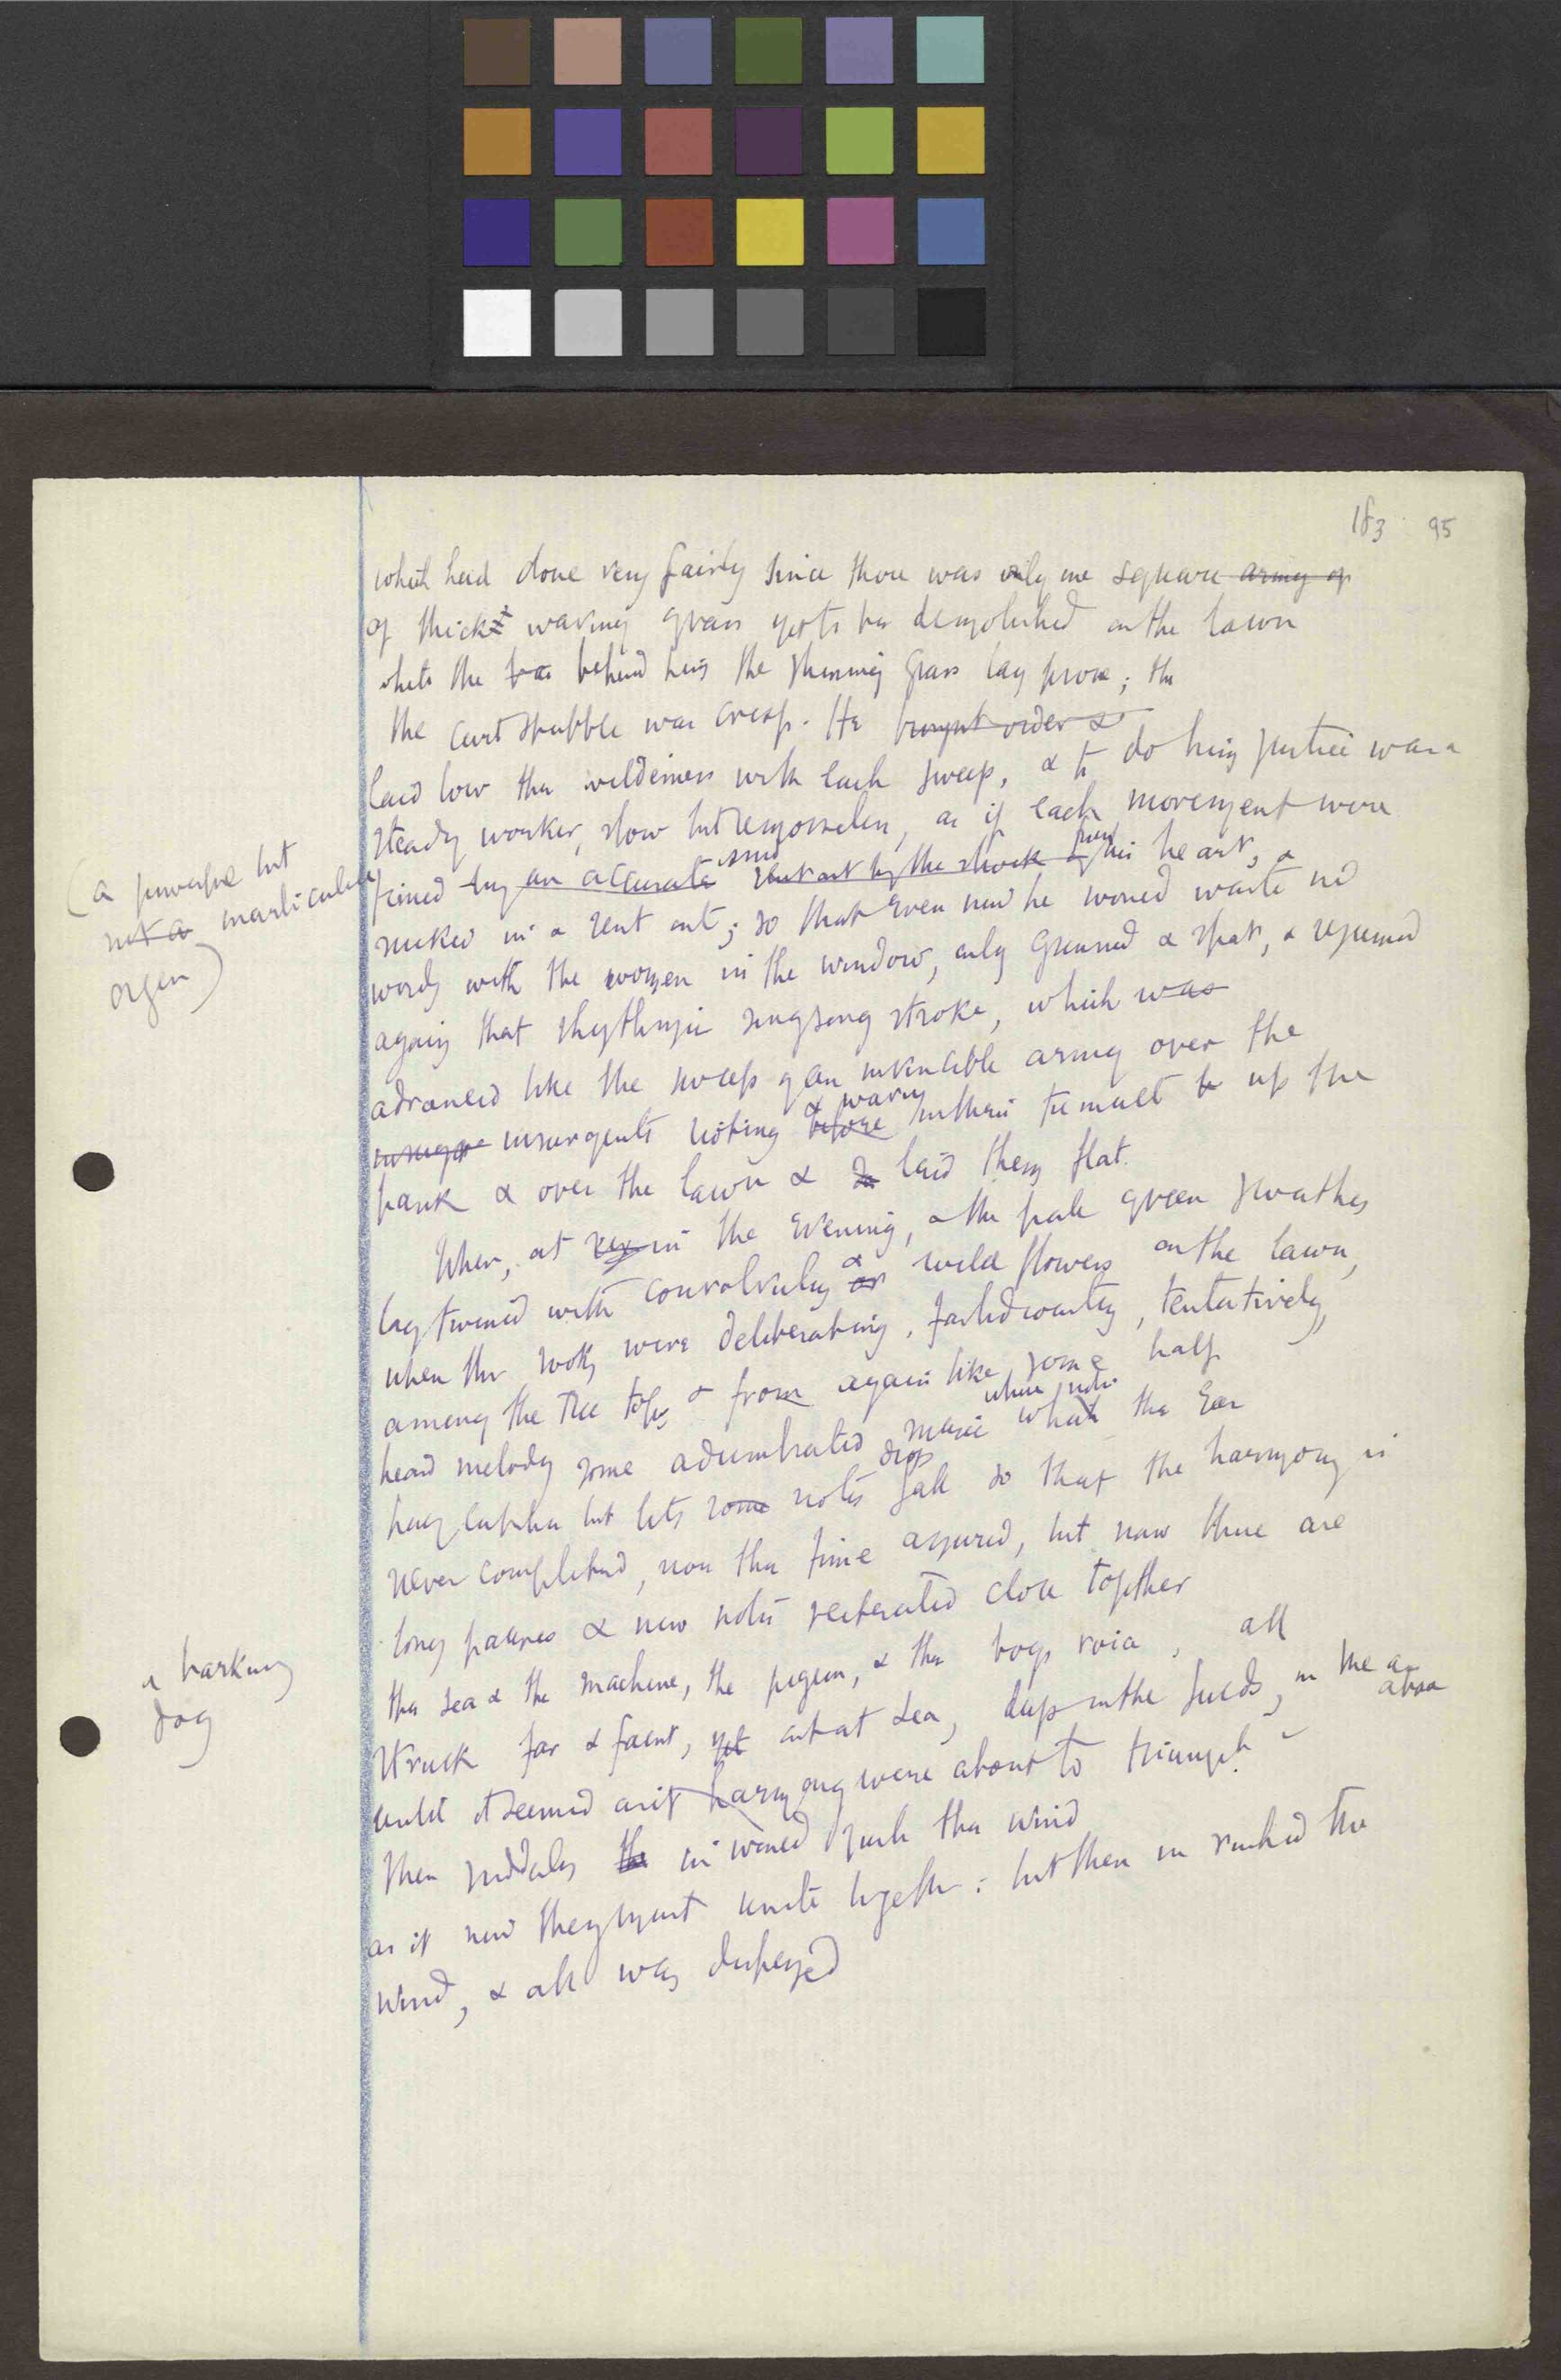 183 95
which had done very fairly since there was only one square army of
of thick waving grass yet to be demolished on the lawn
while the behind him the shining grass lay prone; the
the curt stubble was crisp. He brought order &
laid low the wilderness with each sweep, & to do him justice was a
steady worker, slow but remorseless, as if each movement were
(a powerful but
not a inarticulate
organ)
timed by an accurate sent out by the shock from his heart, &
sucked in & sent out; so that even now he would waste no
words with the women in the window, only grinned & spat, & resumed
again that rhythmic singsong stroke, which was
advanced like the sweep of an invincible army over the
insurgents rioting before & waving in their tumult up the
park & over the lawn & laid them flat.
When, at in the evening, & the pale green swathes
lay twined with convolvulus or & wild flowers on the lawn,
when the rooks were deliberating, tentatively,
among the tree tops & from again like some half
heard melody some adumbrated music where notes what the ear
half catches but lets some notes drop fall so that the harmony is
never completed, nor the time assured, but now there are
long pauses & now notes reiterated close together
a barking
dog
the sea & the machine, the pigeon, & the boys voice, all
struck far & faint, yet out at sea, deep in the fields, in the
until it seemed as if harmony were about to triumph.
then suddenly the in would rush the wind
as if now they must unite together: but then in rushed the
wind, & all was dispersed